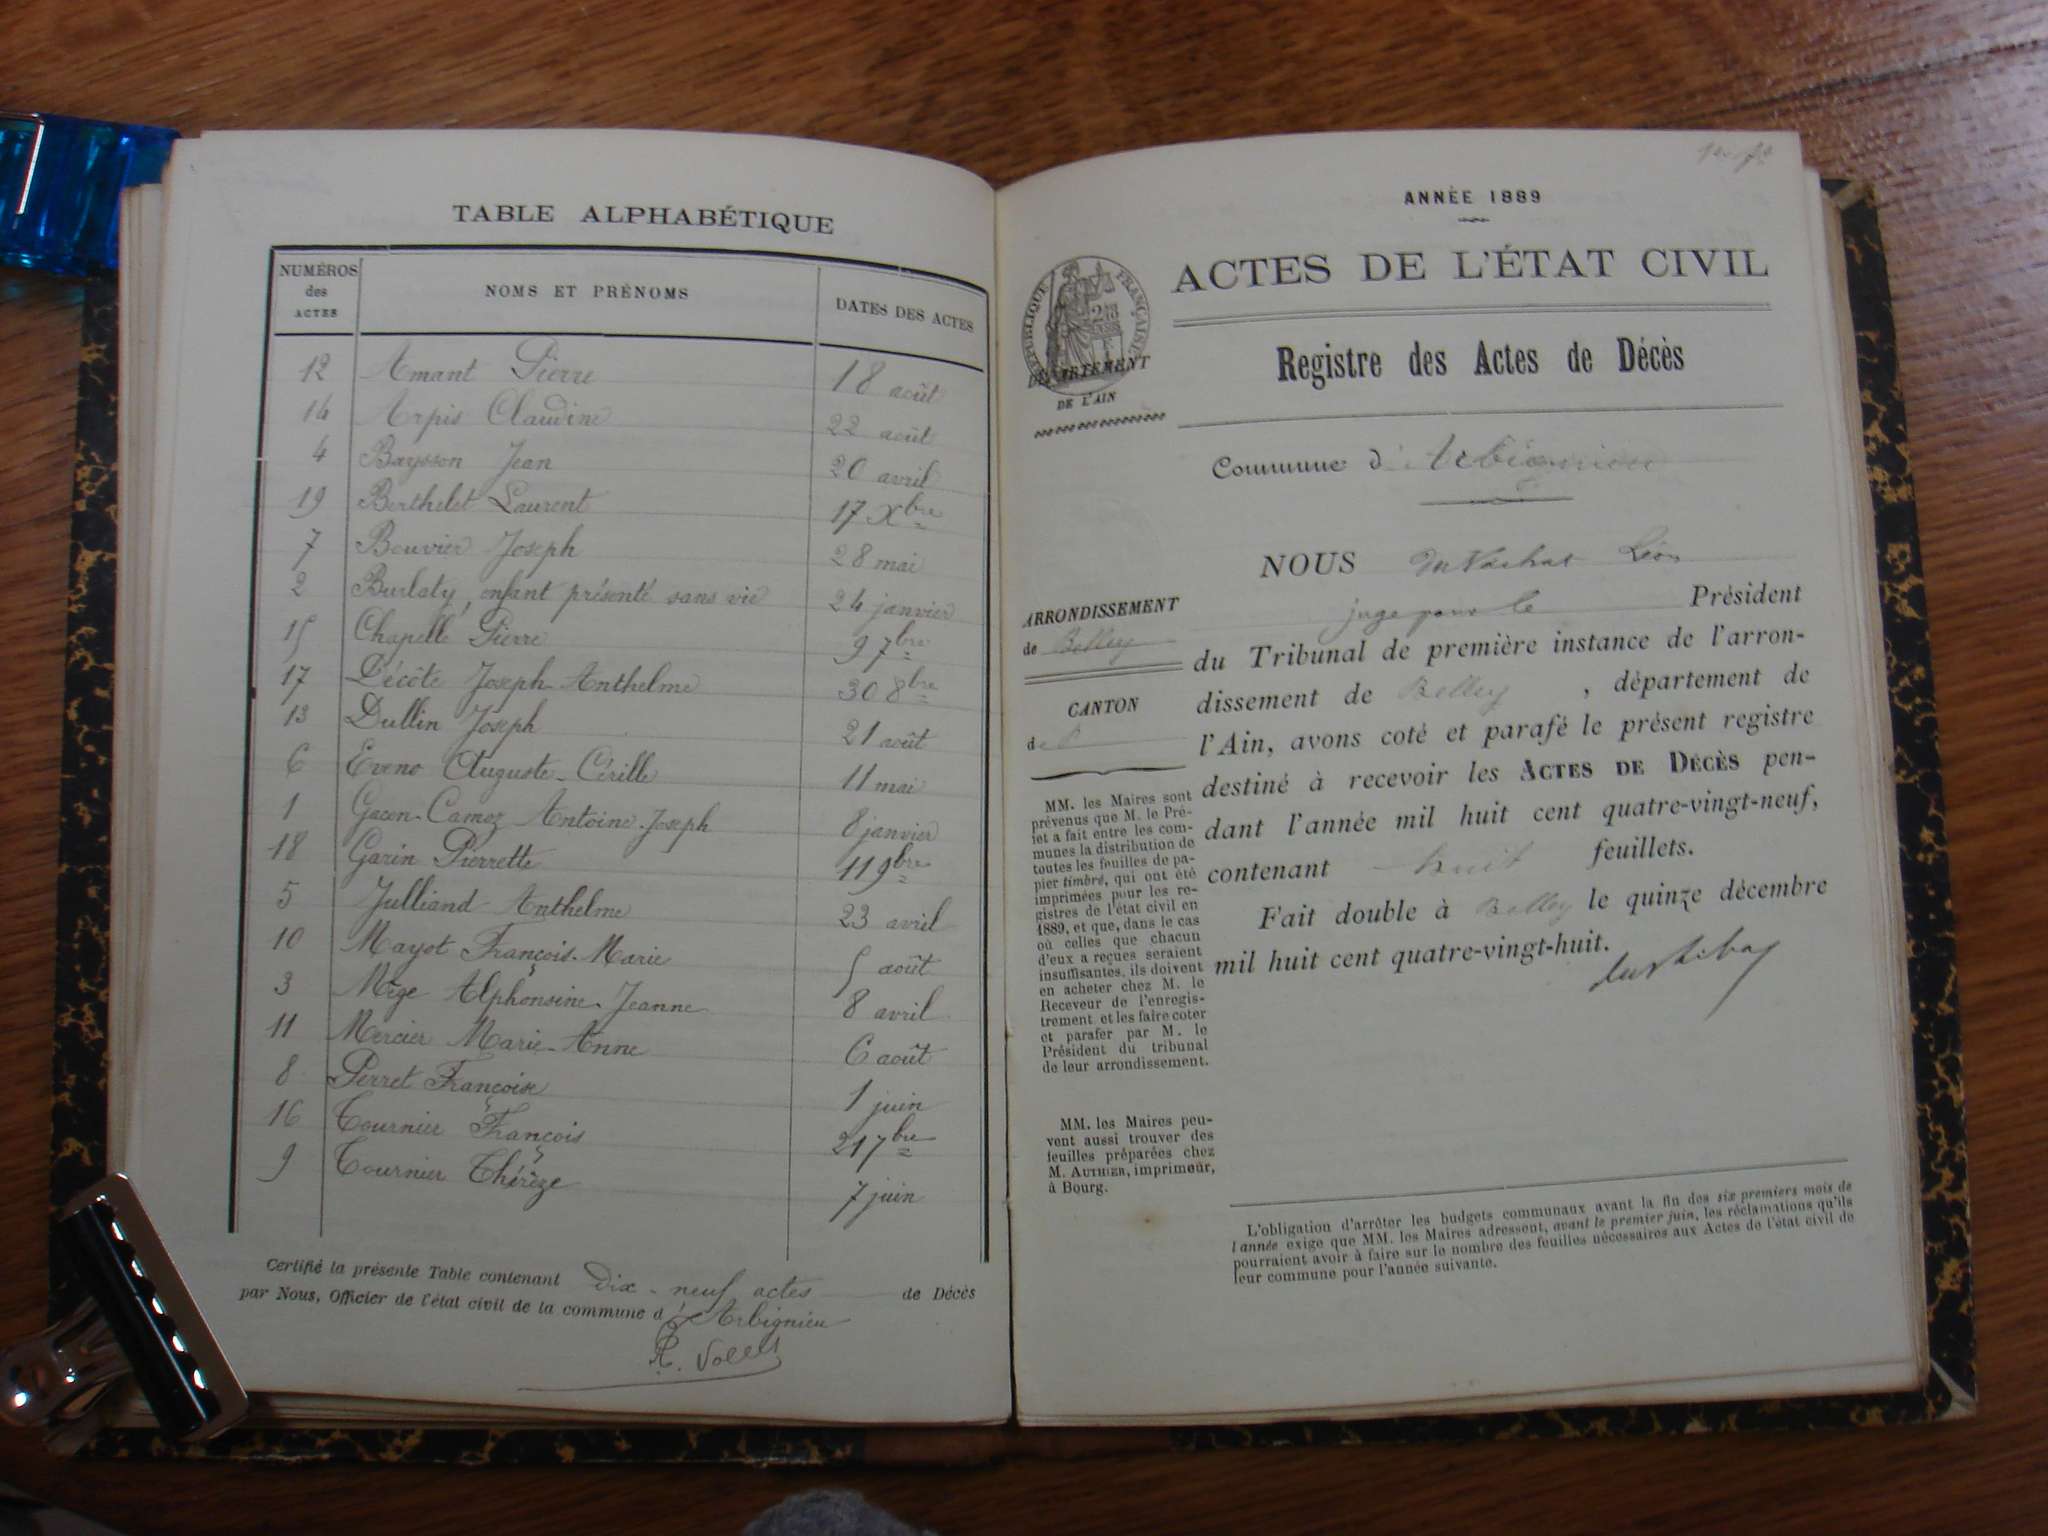 TABLE ALPHABÉTIQUE
NUMÉROS des ACTES NOMS ET PRÉNOMS DATES DES ACTES
12 Amant Pierre 18 août
14 Arpis Claudine 22 août
4 Baysson Jean 20 avril
19 Berthelet Laurent 17 Xbre
7 Bouvier Joseph 28 mai
2 Burlaty, enfant présenté sans vie 24 janvier
15 Chapelle Pierre 9 7bre
17 Décôte Joseph-Anthelme 30 8bre
13 Dullin Joseph 21 août
6 Eveno Auguste-Cérille 11 mai
1 Gacon-Camoz Antoine-Joseph 8 janvier
18 Garin Pierrette 11 9bre
5 Julliand Anthelme 23 avril
10 Mayot François-Marie 5 août
3 Mège Alphonsine-Jeanne 8 avril
11 Mercier Marie-Anne 6 août
8 Perret Françoise 1 juin
16 Tournier François 21 7bre
9 Tournier Thérèze 7 juin
Certifié la présente Table contenant dix-neuf actes de Décès
par Nous, Officier de l'état civil de la commune d'Arbignieu
ANNÉE 1889
ACTES DE L'ÉTAT CIVIL
RÉPUBLIQUE FRANÇAISE
DÉPARTEMENT
DE L'AIN
Registre des Actes de Décès
Commune d'Arbignieu
ARRONDISSEMENT
de Belley
CANTON
de
MM. les Maires sont
prévenus que M. le Pré-
fet a fait entre les com-
munes la distribution de
toutes les feuilles de pa-
pier timbré, qui ont été
imprimées pour les re-
gistres de l'état civil en
1889, et que, dans le cas
où celles que chacun
d'eux a reçues seraient
insuffisantes, ils doivent
en acheter chez M. le
Receveur de l'enregis-
trement et les faire coter
et parafer par M. le
Président du tribunal
de leur arrondissement.
MM. les Maires peu-
vent aussi trouver des
feuilles préparées chez
M. AUTHIER, imprimeur,
à Bourg.
NOUS du Vachat Léon
juge pour le Président
du Tribunal de première instance de l'arron-
dissement de Belley, département de
l'Ain, avons coté et parafé le présent registre
destiné à recevoir les ACTES DE DÉCÈS pen-
dant l'année mil huit cent quatre-vingt-neuf,
contenant huit feuillets.
Fait double à Belley le quinze décembre
mil huit cent quatre-vingt-huit.
L'obligation d'arrêter les budgets communaux avant la fin des six premiers mois de
l'année exige que MM. les Maires adressent, avant le premier juin, les réclamations qu'ils
pourraient avoir à faire sur le nombre des feuilles nécessaires aux Actes de l'état civil de
leur commune pour l'année suivante.